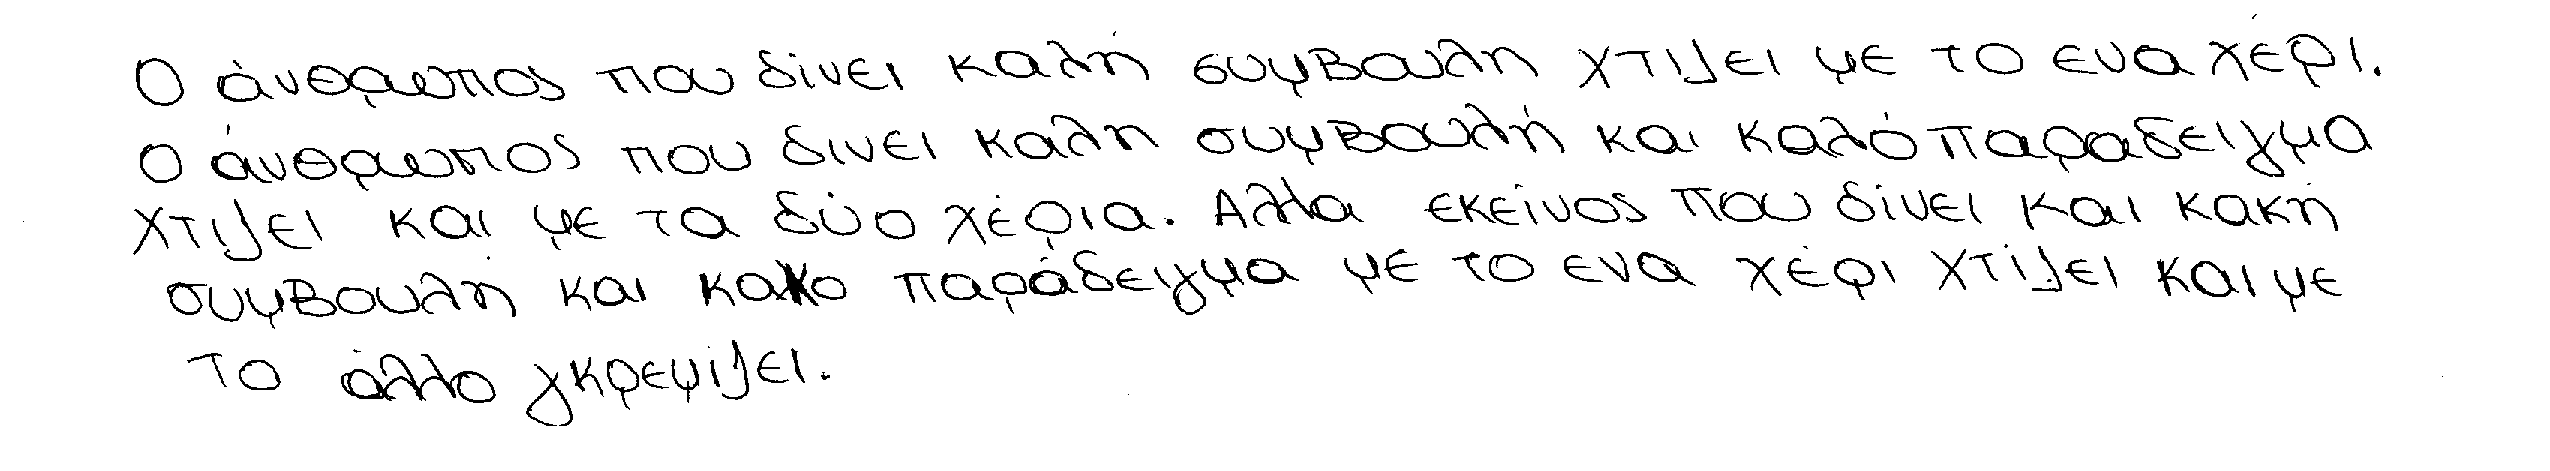 Ο άνθρωπος που δίνει καλή συμβουλη χτιζει με το ενα χέρι.
Ο άνθρωπος που δινει καλη συμβουλή και καλό παραδειγμα
χτιζει και με τα δύο χέρια. Αλλα εκείνος που δίνει και κακή
συμβουλή και κακο παράδειγμα με το ενα χέρι χτίζει και με
το άλλο γκρεμίζει.